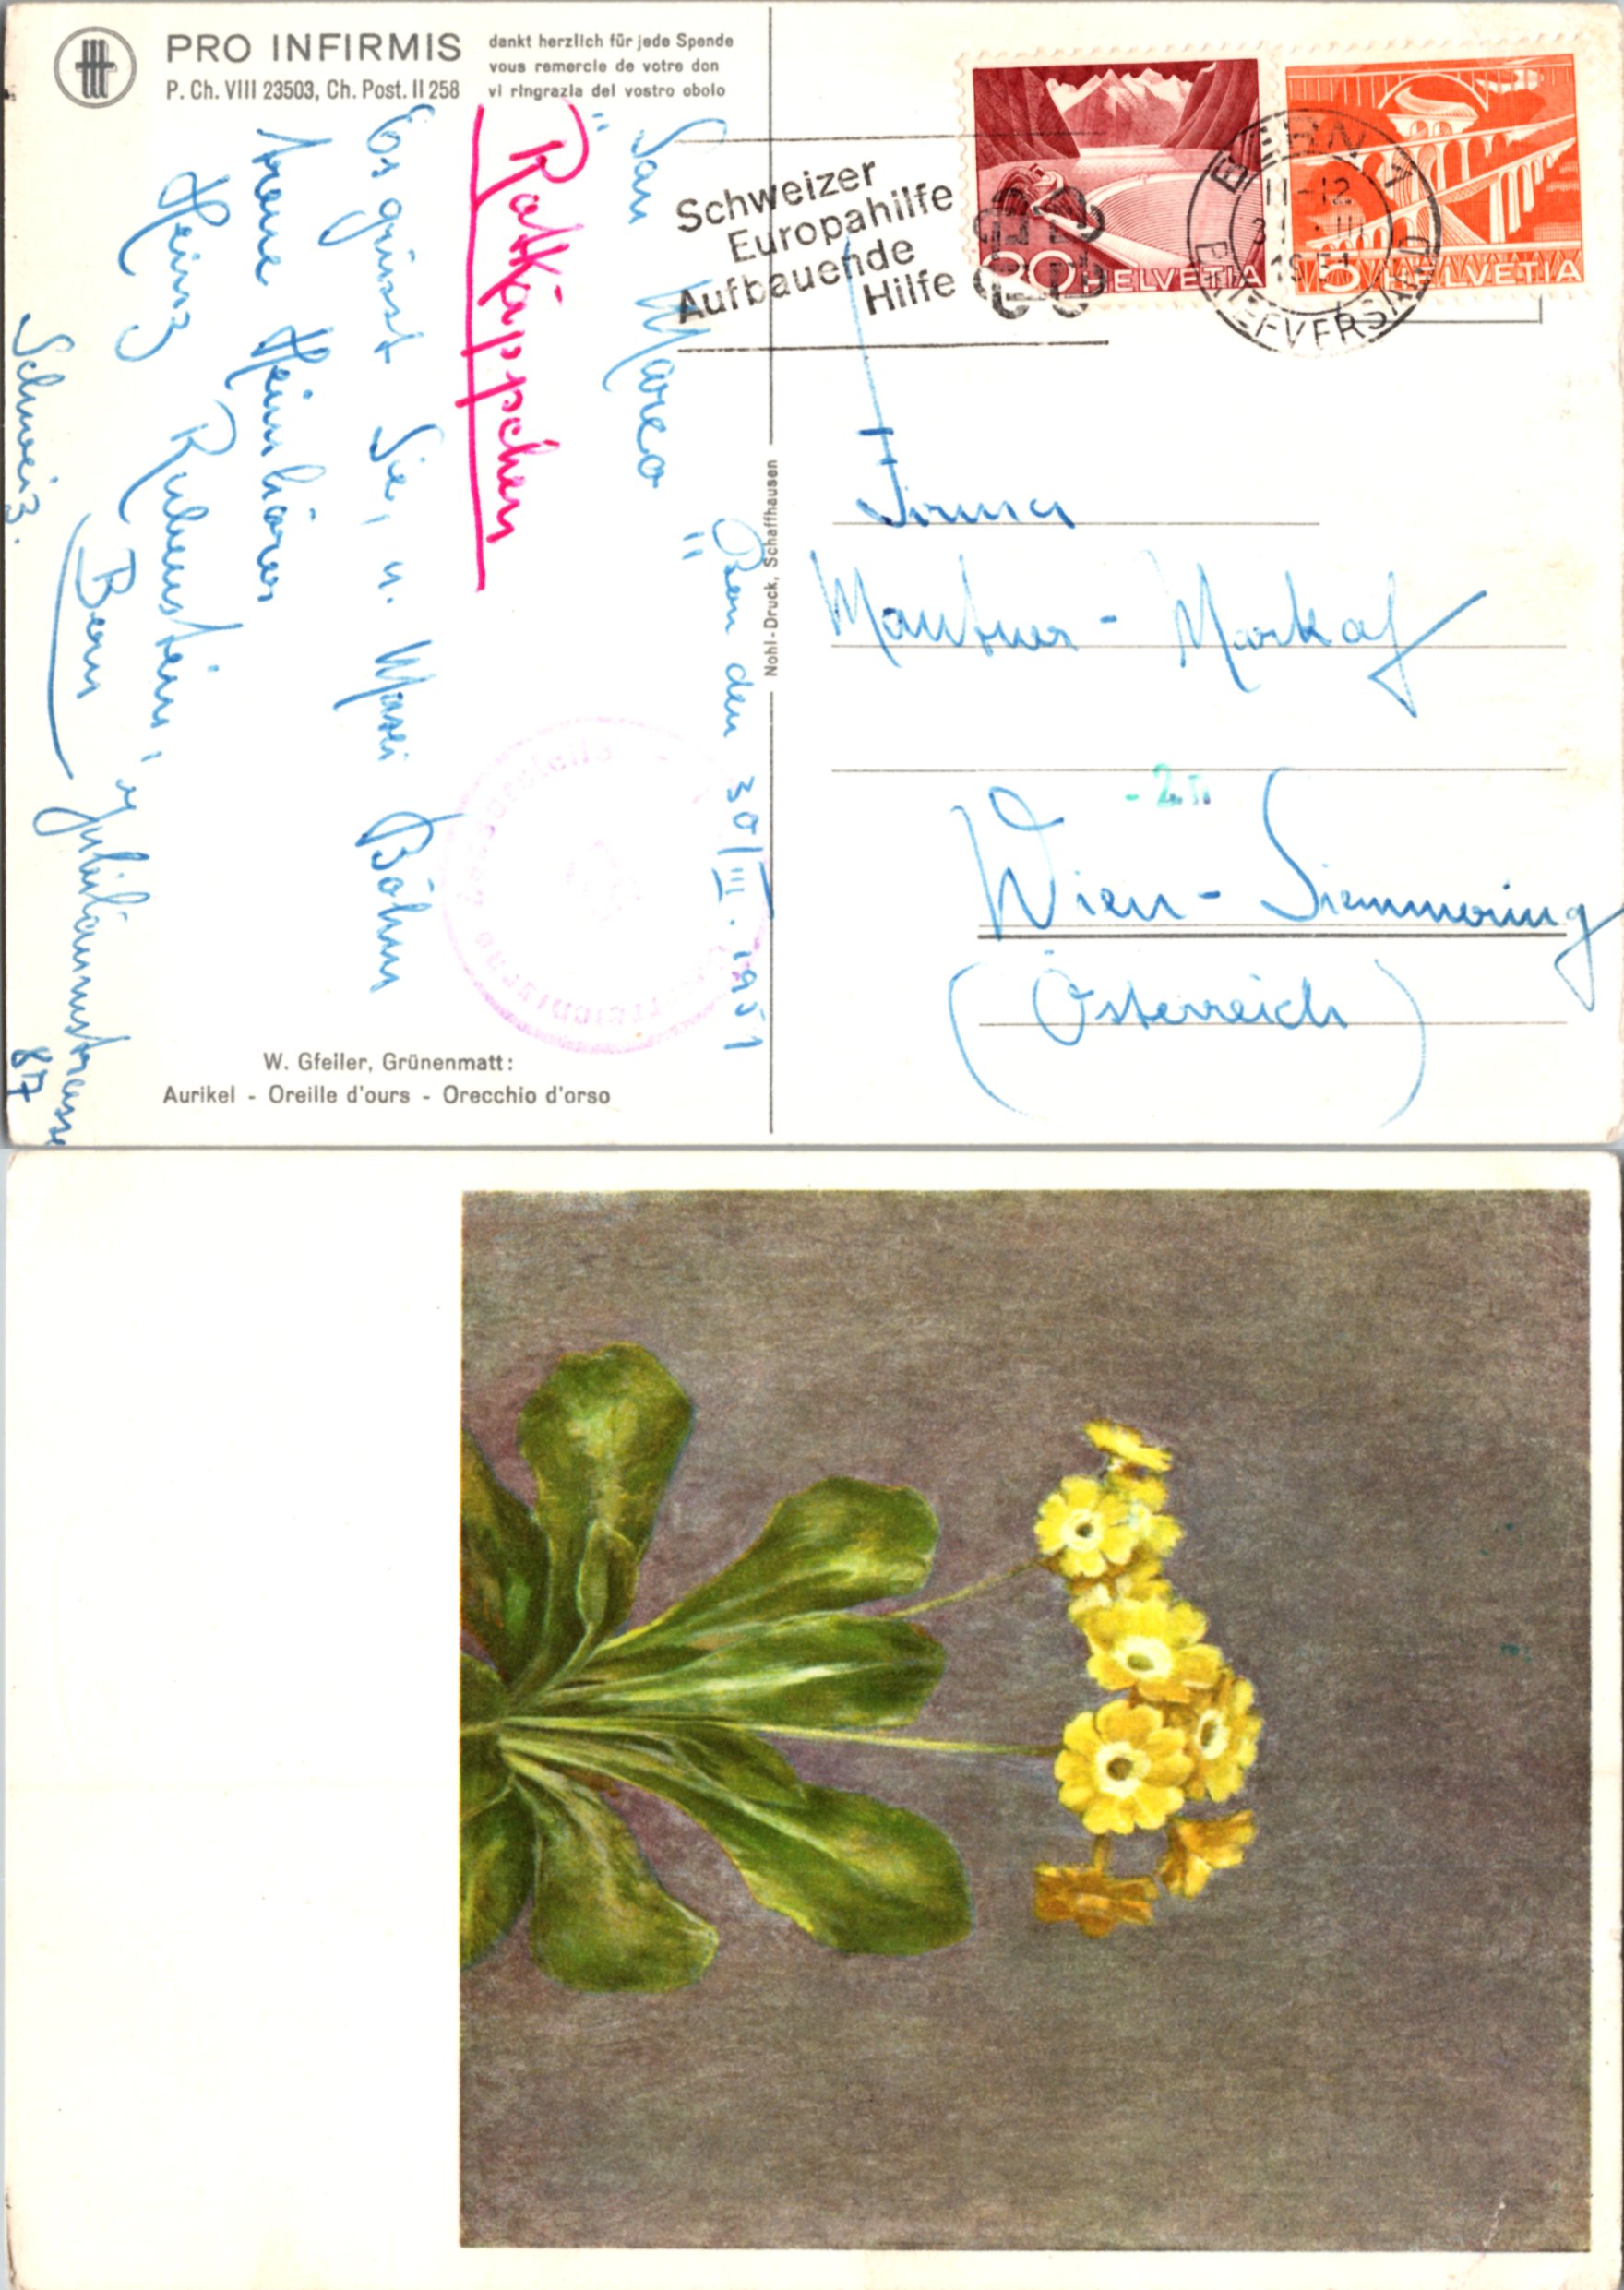 PRO INFIRMIS
P. Ch. VIII 23503, Ch. Post. II 258
dankt herzlich für jede Spende
vous remercie de votre don
vi ringrazia del vostro obolo
Schweizer
Europahilfe
Aufbauende
Hilfe
20 HELVETIA
5 HELVETIA
BERN
11-12
III
1951
BRIEFVERSAND
Bern den 30/III. 1951
San Marco
"Rotkäppchen"
Es grüsst Sie, u. Maxi Böhm
treue
Heinz Rubenstein,
Bern, Jubiläumstrasse
87
Schweiz.
Nohl-Druck, Schaffhausen
Firma
Mautner - Markof
Wien - Simmering
(Österreich)
W. Gfeller, Grünenmatt:
Aurikel - Oreille d'ours - Orecchio d'orso